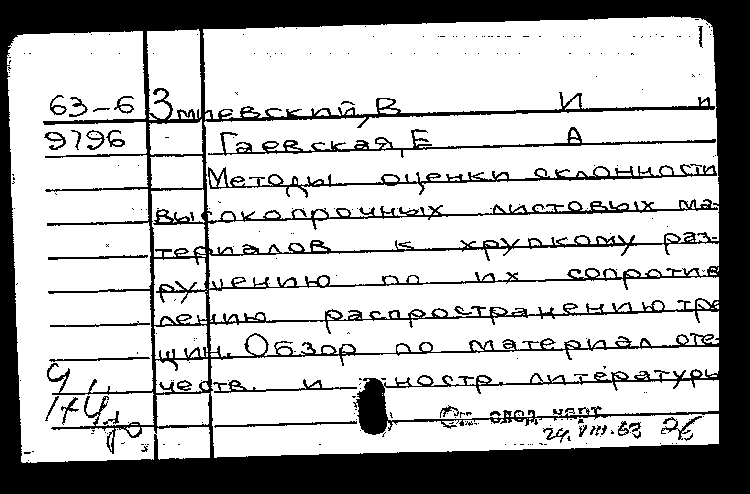 63-6 Змиевский, В И и
9796 Гаевская, Е А
Методы оценки склонности
высокопрочных листовых ма-
териалов к хрупкому раз-
рушению по их сопротив
лению распространению тре
щин. Обзор по материал оте-
честв. и иностр. литературы
См. след. карт.
24.VIII.63 26